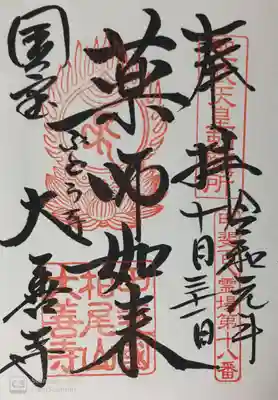 聖武天皇勅願所
甲斐百霊場第十八番
令和元年
奉拝 十月三十一日
薬師如来
国宝
ぶどう寺
大善寺
甲斐國
柏尾山
大善寺